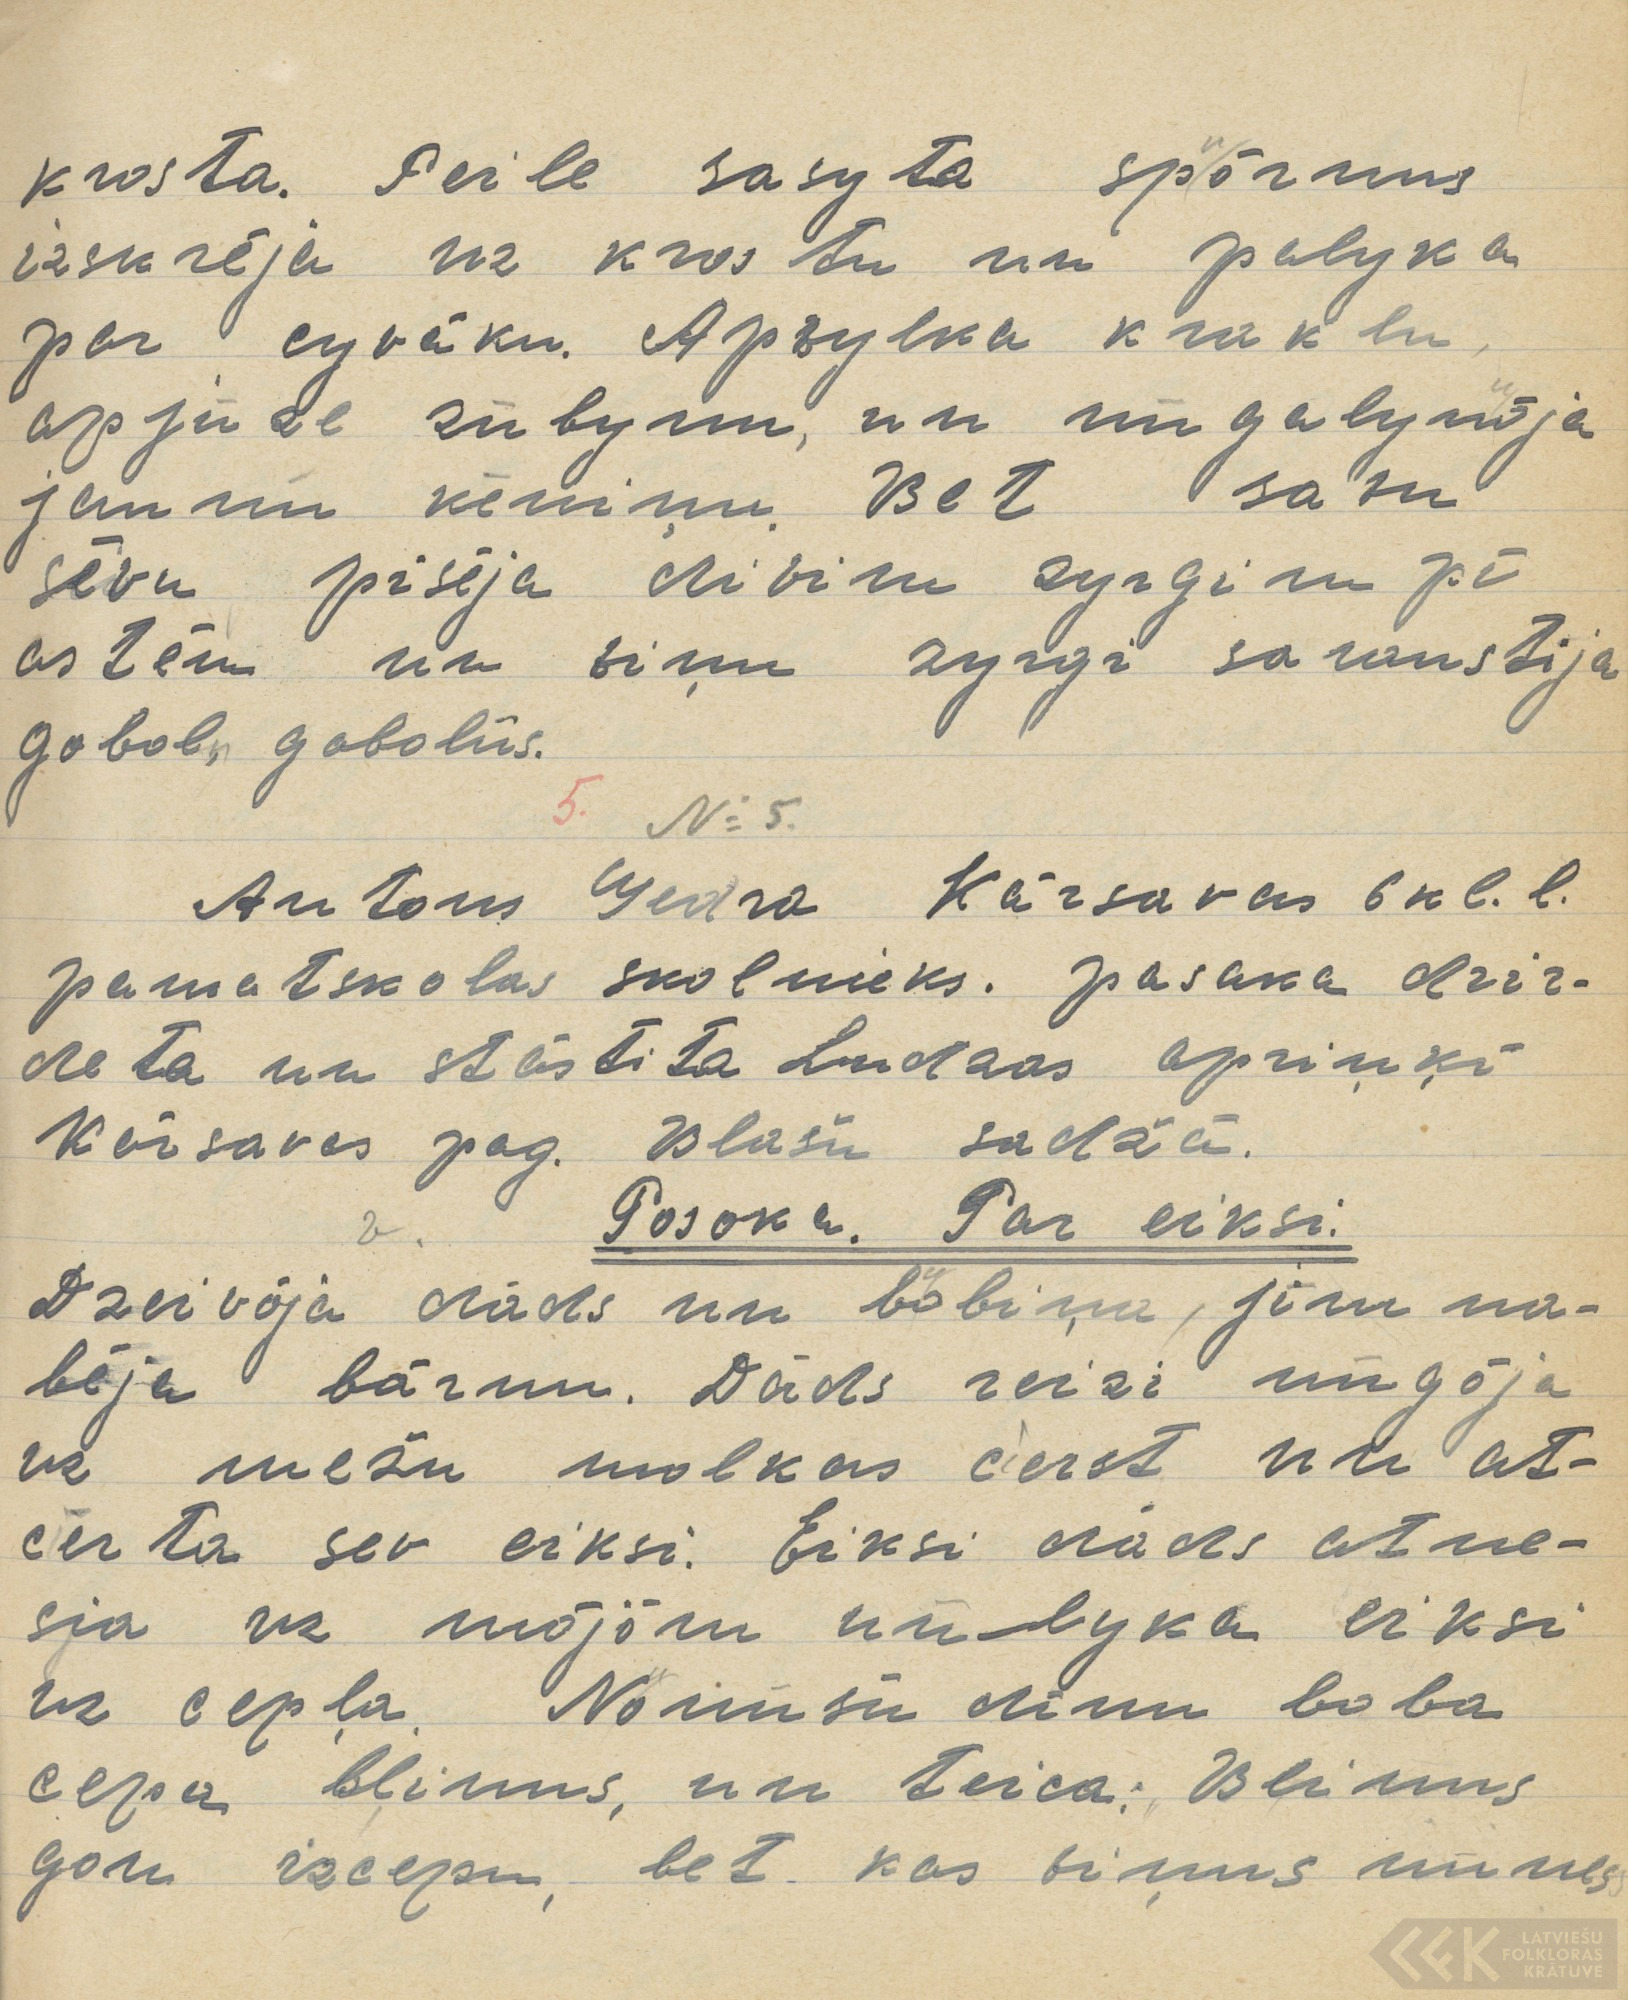 krosta. Peile sasyta spōrnus
izskrēja uz krostu un palyka
par cyvāku. Apvylka kraklu,
apjūze zūbynu, un nūgalynōja
jaunū kēniņu. Bet sovu
sēvu pisēja divim zyrgim pī
astēm un viņu zyrgi saraustija
gobolu gobolūs.
5. № 5.
Antons Gedra Kārsavas 6 kl. l.
pamatskolas skolnieks. pasaka dzir-
deta un stāstita Ludzas apriņķī
Kārsavas pag. Blašu sadžā.
v. Posoka. Par eiksi.
Dzeivōja dāds un bōbiņa, jīm na-
bēja bārnu. Dāds reizi nūgōja
uz mežu molkas ćerst un at-
ćerta sev eiksi. Eiksi dāds atne-
sja uz mōjōm un lyka eiksi
uz cepļa. Nōkūšū dīnu boba
cepa bļinus, un teica: „Bļinus
gon izcepu, bet kas viņus nūness
LATVIEŠU
FOLKLORAS
KRĀTUVE